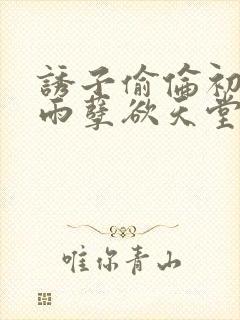 誘子偷倫初
雨孽欲天堂
唯你青山